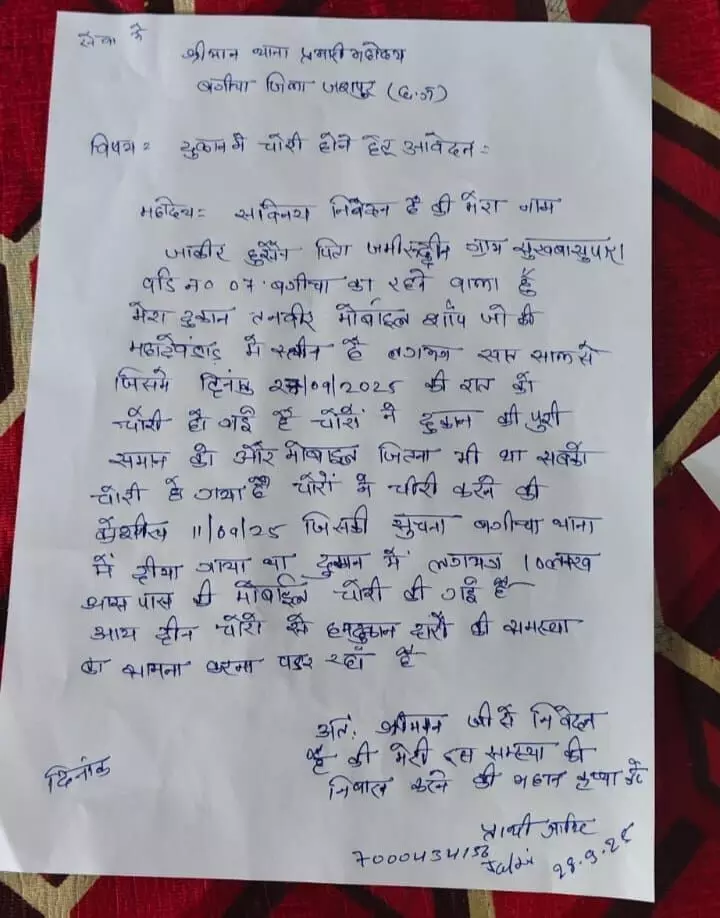 सेवा में
श्रीमान थाना प्रभारी महोदय
बगीचा जिला जशपुर (छ.ग)
विषय = दुकान मे चोरी होने हेतु आवेदन =
महोदय = सविनय निवेदन है की मेरा नाम
जाकीर हुसैन पिता जमीरूद्दीन ग्राम सुखबासुपारा
वार्ड न० 07 बगीचा का रहने वाला हूँ
मेरा दुकान तनवीर मोबाईल शॉप जो की
महादेवडांड़ मे स्थीत है लगभग सात साल से
जिसमे दिनांक 27/09/2025 की रात को
चोरी हो गई है चोरों ने दुकान की पुरी
समान को और मोबाइल जितना भी था सबको
चोरी हो गया है चोरों ने चोरी करने की
कोशीस 11/09/25 जिसकी सुचना बगीचा थाना
में दीया गाया था दुकान में लगभग 10 लाख
आस पास की मोबाईल चोरी की गई है
आय दीन चोरी से हम दुकान दारों की समस्या
का सामना करना पड़ रहाँ है
अतं: श्रीमान जी से निवेदन
है की मेरी इस समस्या की
निवारन करने की महान कृप्या करे
दिनांक
प्रार्थी जाकिर
7000434156
28.9.25